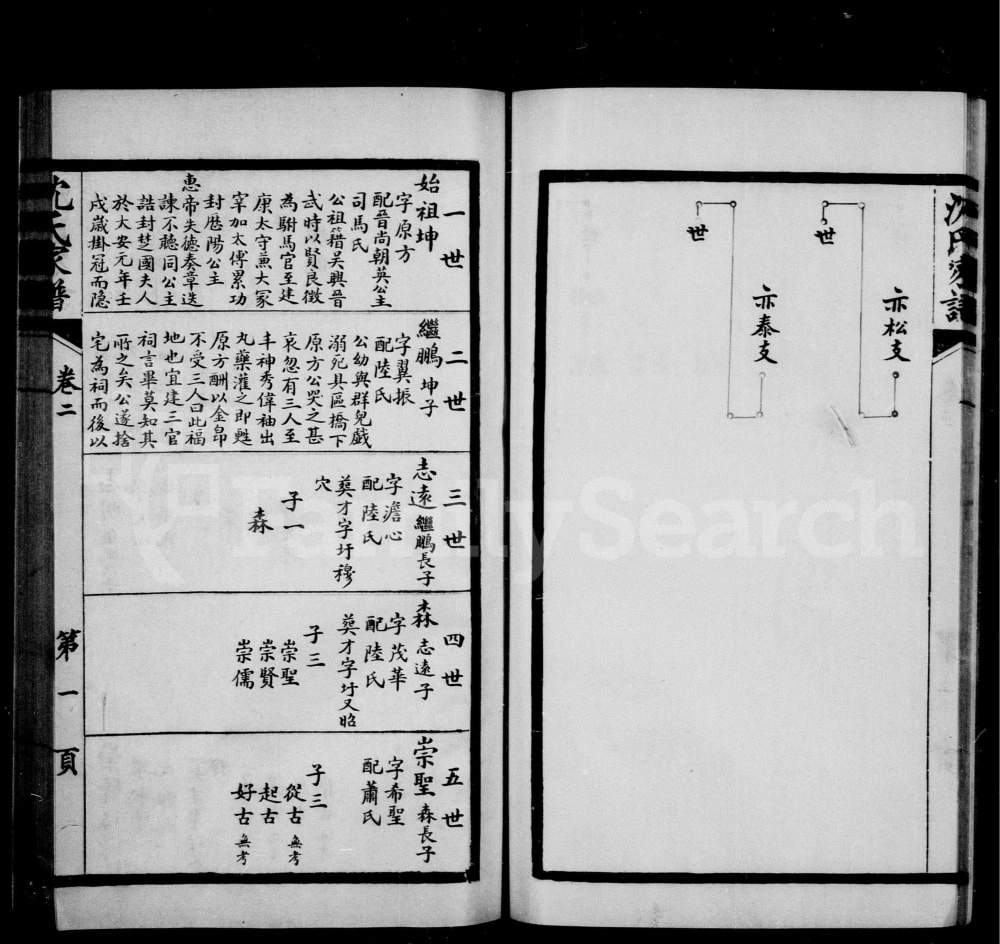 沈氏家譜
世
亦松支
世
亦泰支
一世
始祖坤
字原方
配晉尚朝英公主
司馬氏
公祖籍吳興晉
武時以賢良徵
為駙馬官至建
康太守兼大冢
宰加太傅累功
封歷陽公主
惠帝失德奏章迭
諫不聽同公主
誥封楚國夫人
於大安元年壬
戌歲掛冠而隐
二世
繼鵬 坤子
字翼振
配陸氏
公幼與群兒戲
溺死具區橋下
原方公哭之甚
哀忽有三人至
丰神秀偉袖出
丸藥灌之即甦
原方酬以金帛
不受三人曰此福
地也宜建三官
祠言畢莫知其
所之矣公遂捨
宅為祠而後以
三世
志遠 繼鵬長子
字澹心
配陸氏
葬才字圩穆
穴
子一
森
四世
森 志遠子
字茂華
配陸氏
葬才字圩又昭
子三
崇聖
崇賢
崇儒
五世
崇聖 森長子
字希聖
配蕭氏
子三
從古 無考
起古
好古 無考
沈氏家譜
卷二
第一頁
FamilySearch